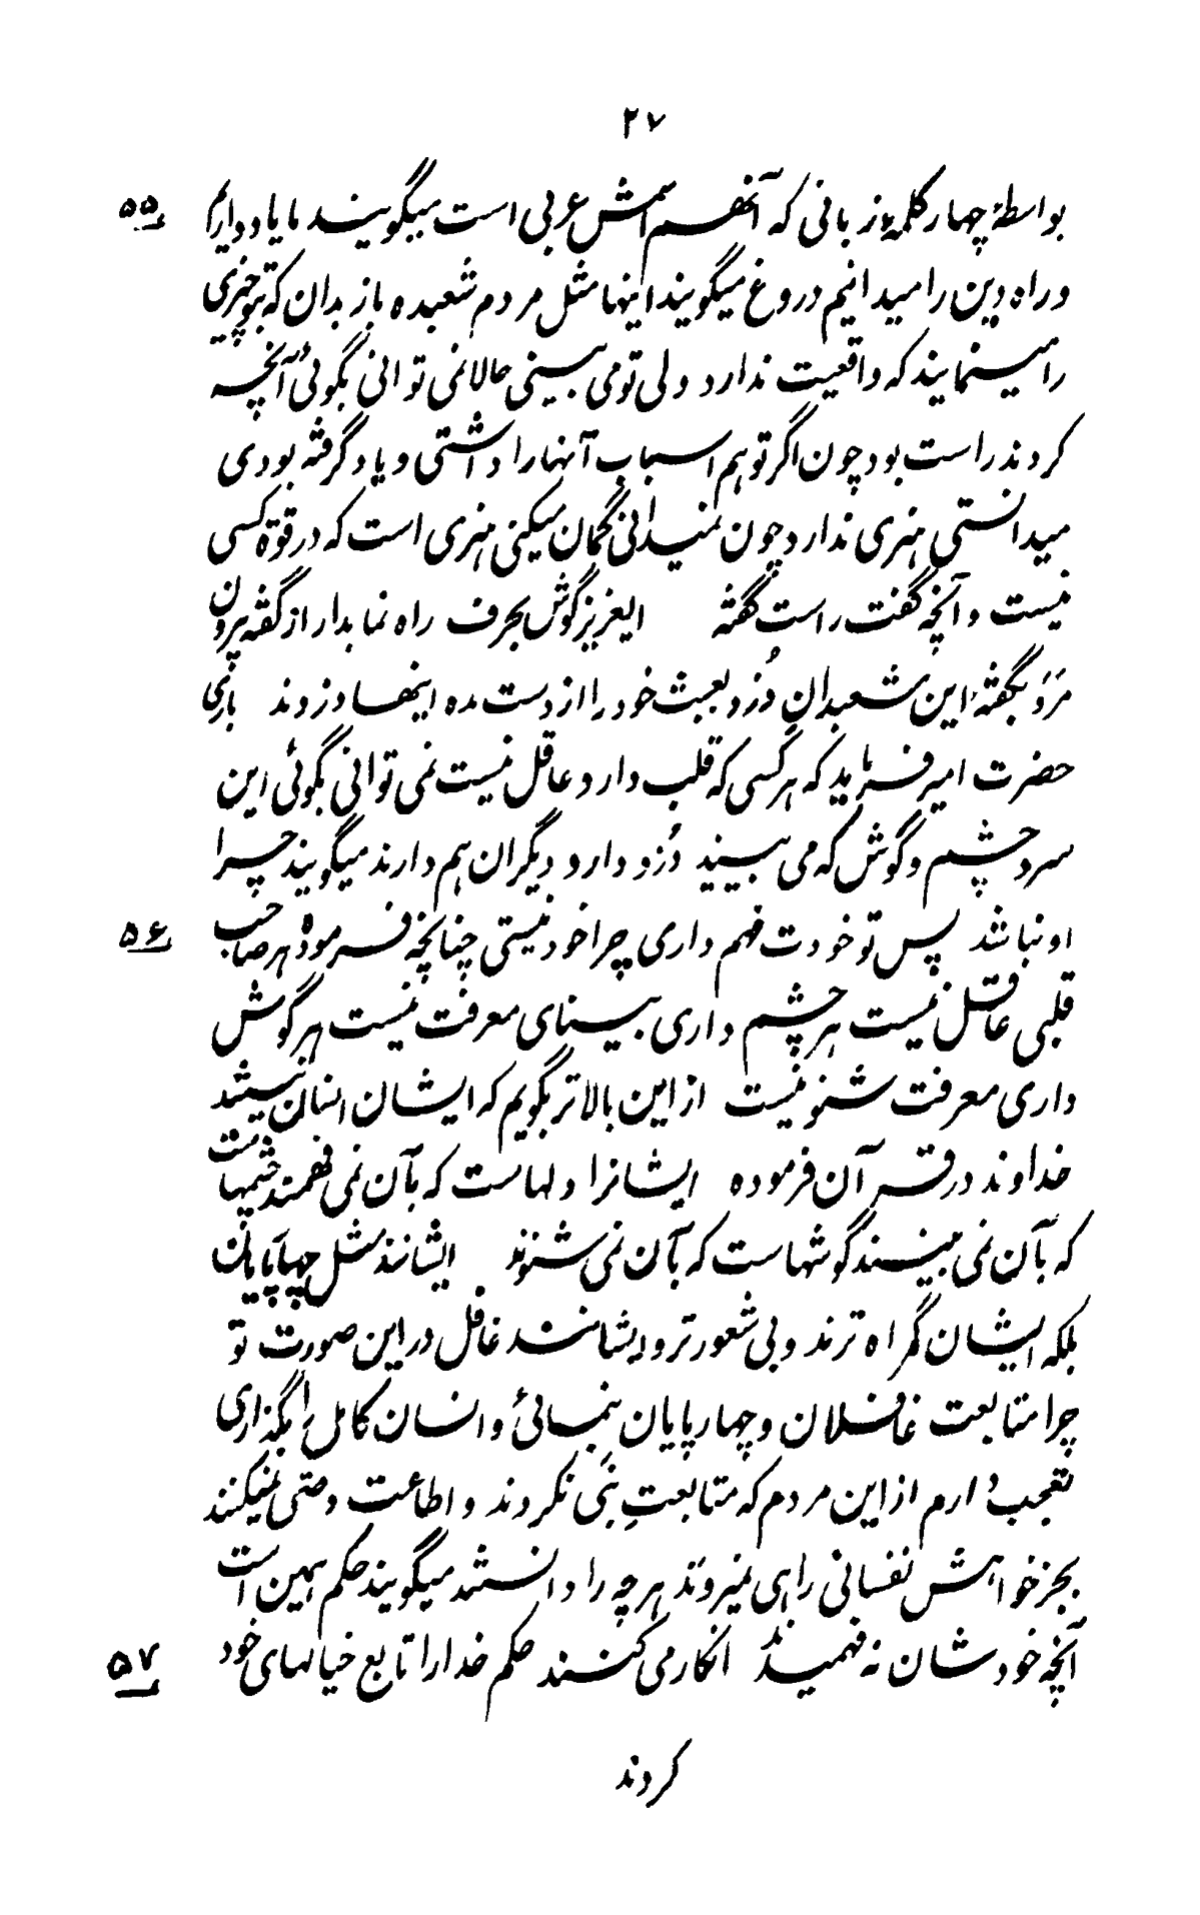 ۲۷
بواسطهٔ چهار کلمهٔ زبانی که آنهم اسمش عربی است میگویند ما یاد داریم ۵۵
و راه دین را میدانیم دروغ میگویند اینها مثل مردم شعبده بازند بدان که بتو چیزی
را مینمایند که واقعیت ندارد ولی تو می بینی حالا نمی توانی بگوئی آنچه
کردند راست بود چون اگر تو هم اسباب آنها را داشتی و یاد گرفته بودی
میدانستی هنری ندارد چون نمیدانی گمان میکنی هنری است که در قوهٔ کسی
نیست و آنچه گفت راست گفته ایعزیز گوش بحرف راه نما بدار از گفته بیرون
مَرَو بگفتهٔ این شعبدانِ دُزد بعبث خود را از دست مده اینها دزدند باری
حضرت امیر فرماید که هر کسی که قلب دارد عاقل نیست نمی توانی بگوئی این
سر و چشم و گوش که می بینید دُزد دارد دیگران هم دارند میگویند چرا
او نباشد پس تو خودت فهم داری چرا خود نیستی چنانچه فرموده هر صاحب ۵۶
قلبی عاقل نیست هر چشم داری بینای معرفت نیست هر گوش
داری معرفت شنو نیست از این بالاتر بگویم که ایشان انسان نیستند
خداوند در قرآن فرموده ایشانرا دلهاست که بآن نمی فهمند چشمهاست
که بآن نمی بینند گوشهاست که بآن نمی شنوند ایشانند مثل چهارپایان
بلکه ایشان گمراه ترند و بی شعورتر و ایشانند غافل در این صورت تو
چرا متابعت غافلان و چهارپایان بنمائی و انسان کامل را بگذاری
تعجب دارم از این مردم که متابعتِ نبی نکردند و اطاعت وصی نمیکنند
بجز خواهش نفسانی راهی نمیروند هر چه را دانستند میگویند حکم همین است
آنچه خودشان نه فهمیدند انکار می کنند حکم خدا را تابع خیالهای خود ۵۷
کردند